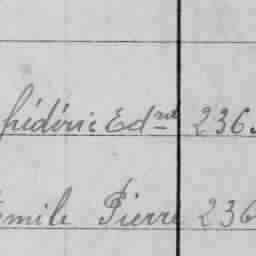 frédéric Edrd 236.
émile Pierre 236